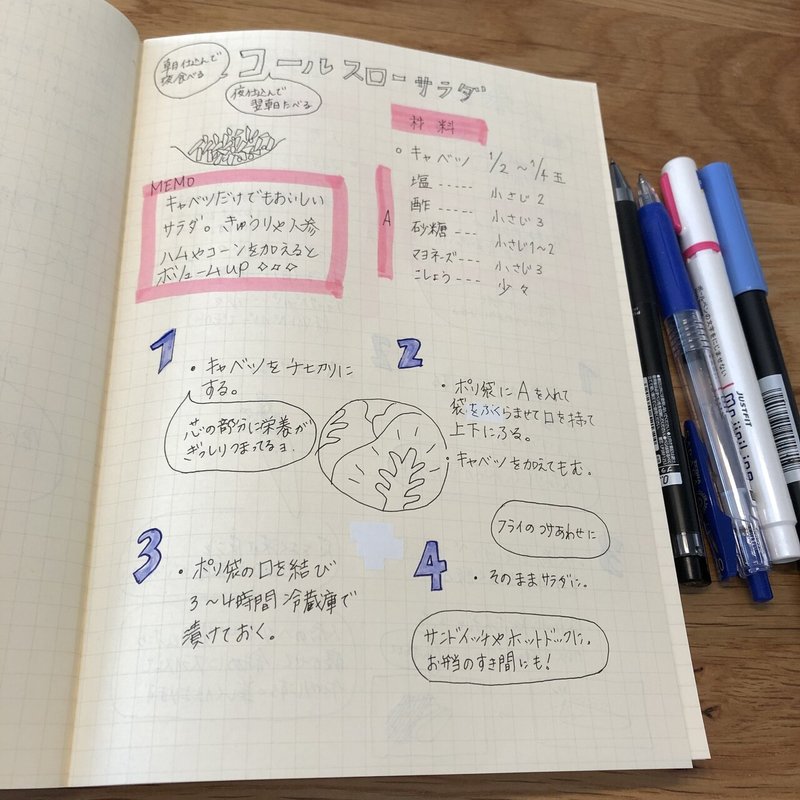 朝仕込んで
夜食べる
コールスローサラダ
夜仕込んで
翌朝たべる
材料
○ キャベツ 1/2 〜 1/4 玉
A
塩 ----- 小さじ 2
酢 ----- 小さじ 3
砂糖 ---- 小さじ1〜2
マヨネーズ--- 小さじ 3
こしょう --- 少々
MEMO
キャベツだけでもおいしい
サラダ。きゅうりや人参
ハムやコーンを加えると
ボリュームup ◇◇◇
1
・キャベツを千切りに
する。
芯の部分に栄養が
ぎっしりつまってるヨ。
2
・ポリ袋にAを入れて
袋をふくらませて口を持って
上下にふる。
・キャベツを加えてもむ。
3
・ポリ袋の口を結び
3〜4時間 冷蔵庫で
漬けておく。
フライのつけあわせに
4
・そのままサラダに。
サンドイッチやホットドックに。
お弁当のすき間にも!
JUSTFIT